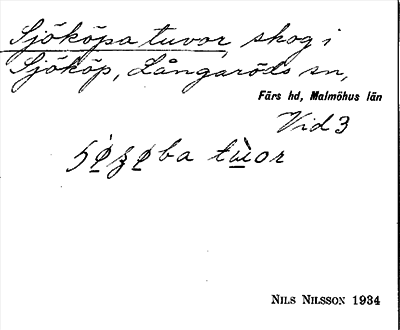 Sjököpa tuvor, skog i
Sjököp, Långaröds sn,
Färs hd, Malmöhus län
Vid 3
tùor
NILS NILSSON 1934